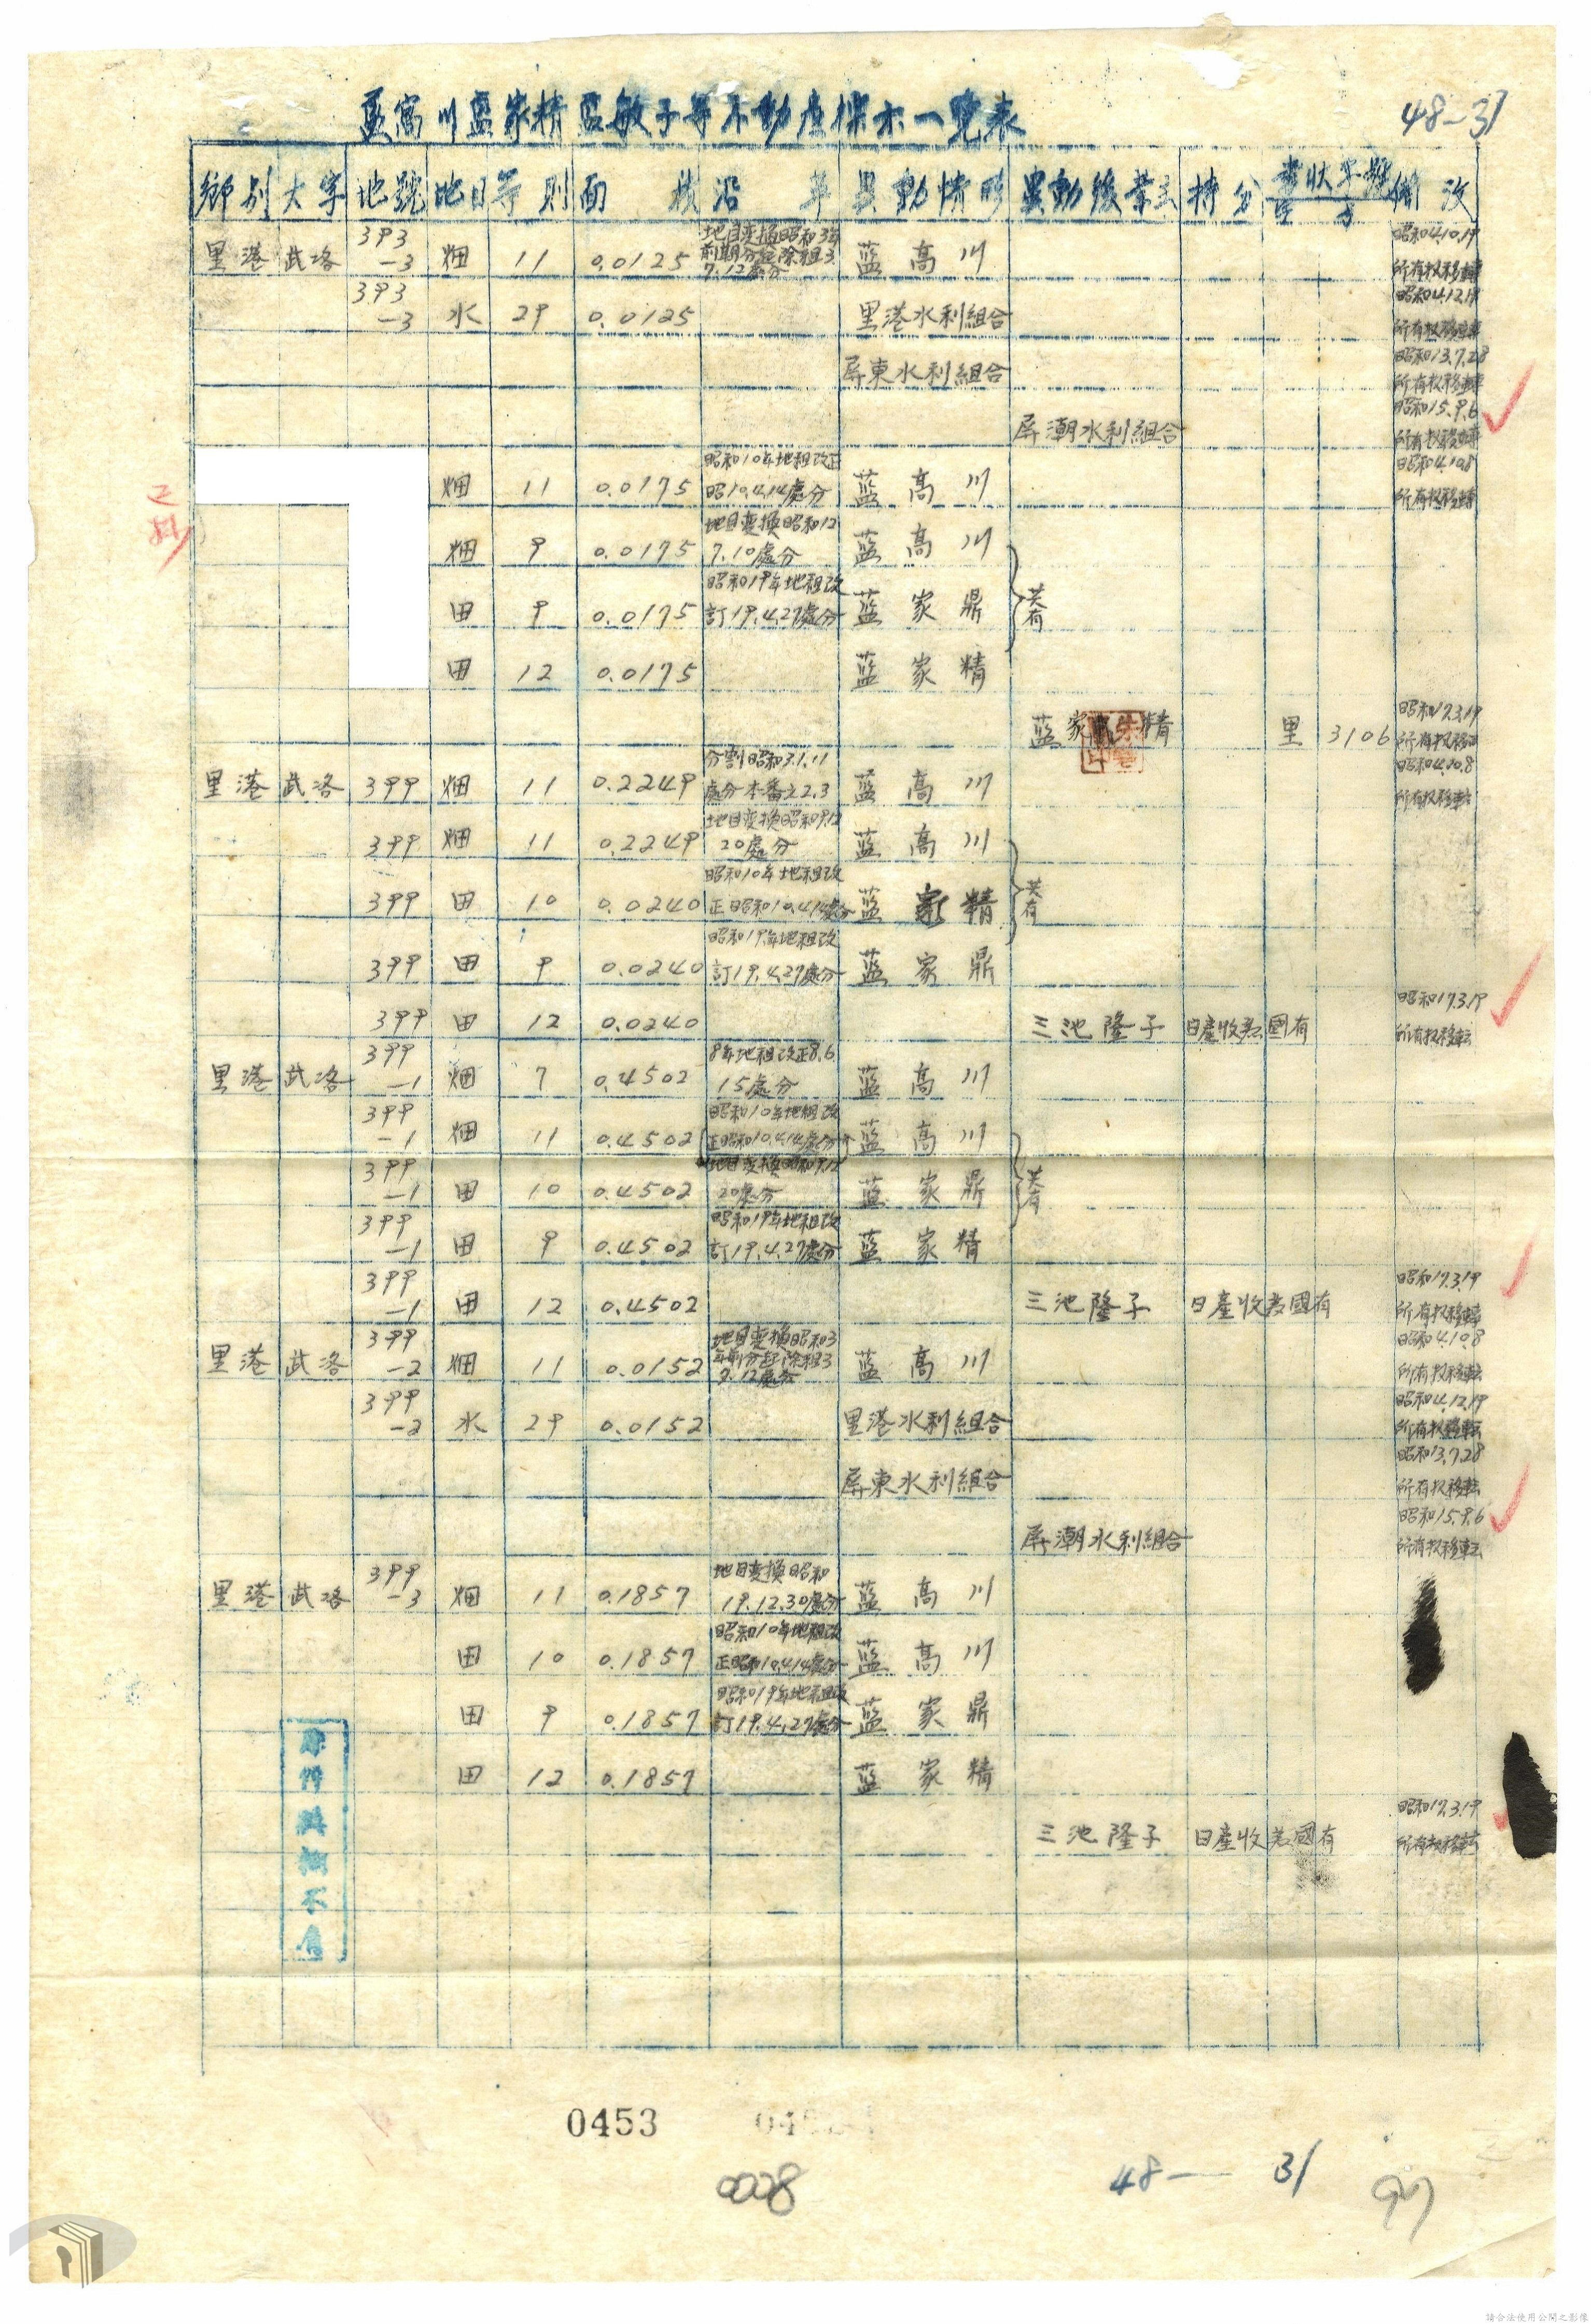 藍高川藍家精藍敏子等不動產標示一覽表
48-31
鄉別 大字 地號 地目 等則 面積 沿革 異動情形 異動後業主 持分 書狀字號 字 號 備攷
里港 武洛 393-3 畑 11 0.0125 地目変換昭和3年前期分起除租3.7.12處分 藍高川 昭和4.10.19所有权移轉
393-3 水 29 0.0125 里港水利組合 昭和4.12.19所有权移轉
屏東水利組合 昭和13.7.28所有权移轉
屏潮水利組合 昭和15.9.6所有权移轉
畑 11 0.0175 昭和10年地租改正昭10.4.14處分 藍高川 昭和4.10.8所有权移轉
畑 9 0.0175 地目変換昭和12.7.10處分 藍高川
田 9 0.0175 昭和19年地租改訂19.4.27處分 藍家鼎 共有
田 12 0.0175 藍家精
藍家精 里 3106 昭和17.3.19所有权移轉
里港 武洛 399 畑 11 0.2249 分割昭和3.1.11處分本番之2.3 藍高川 昭和4.10.8所有权移轉
399 畑 11 0.2249 地目変換昭和9.12.20處分 藍高川
399 田 10 0.0240 昭和10年地租改正昭和10.4.14處分 藍家精 共有
399 田 9 0.0240 昭和19年地租改訂19.4.27處分 藍家鼎
399 田 12 0.0240 三池隆子 日產收為國有 昭和17.3.19所有权移転
里港 武洛 399-1 畑 7 0.4502 8年地租改正8.6.15處分 藍高川
399-1 畑 11 0.4502 昭和10年地租改正昭和10.4.14處分 藍高川
399-1 田 10 0.4502 地目変換昭和9.12.20處分 藍家鼎 共有
399-1 田 9 0.4502 昭和19年地租改訂19.4.27處分 藍家精
399-1 田 12 0.4502 三池隆子 日產收為國有 昭和17.3.19所有权移轉
里港 武洛 399-2 畑 11 0.0152 地目変換昭和3年前分起除租3.7.12處分 藍高川 昭和4.10.8所有权移転
399-2 水 29 0.0152 里港水利組合 昭和4.12.19所有权移転
屏東水利組合 昭和13.7.28所有权移転
屏潮水利組合 昭和15.9.6所有权移転
里港 武洛 399-3 畑 11 0.1857 地目変換昭和19.12.30處分 藍高川
田 10 0.1857 昭和10年地租改正昭和10.4.14處分 藍高川
田 9 0.1857 昭和19年地租改訂19.4.27處分 藍家鼎
田 12 0.1857 藍家精
三池隆子 日產收為國有 昭和17.3.19所有权移転
原件模糊不清
0453
0008
48— 31
97
請合法使用公開之影像